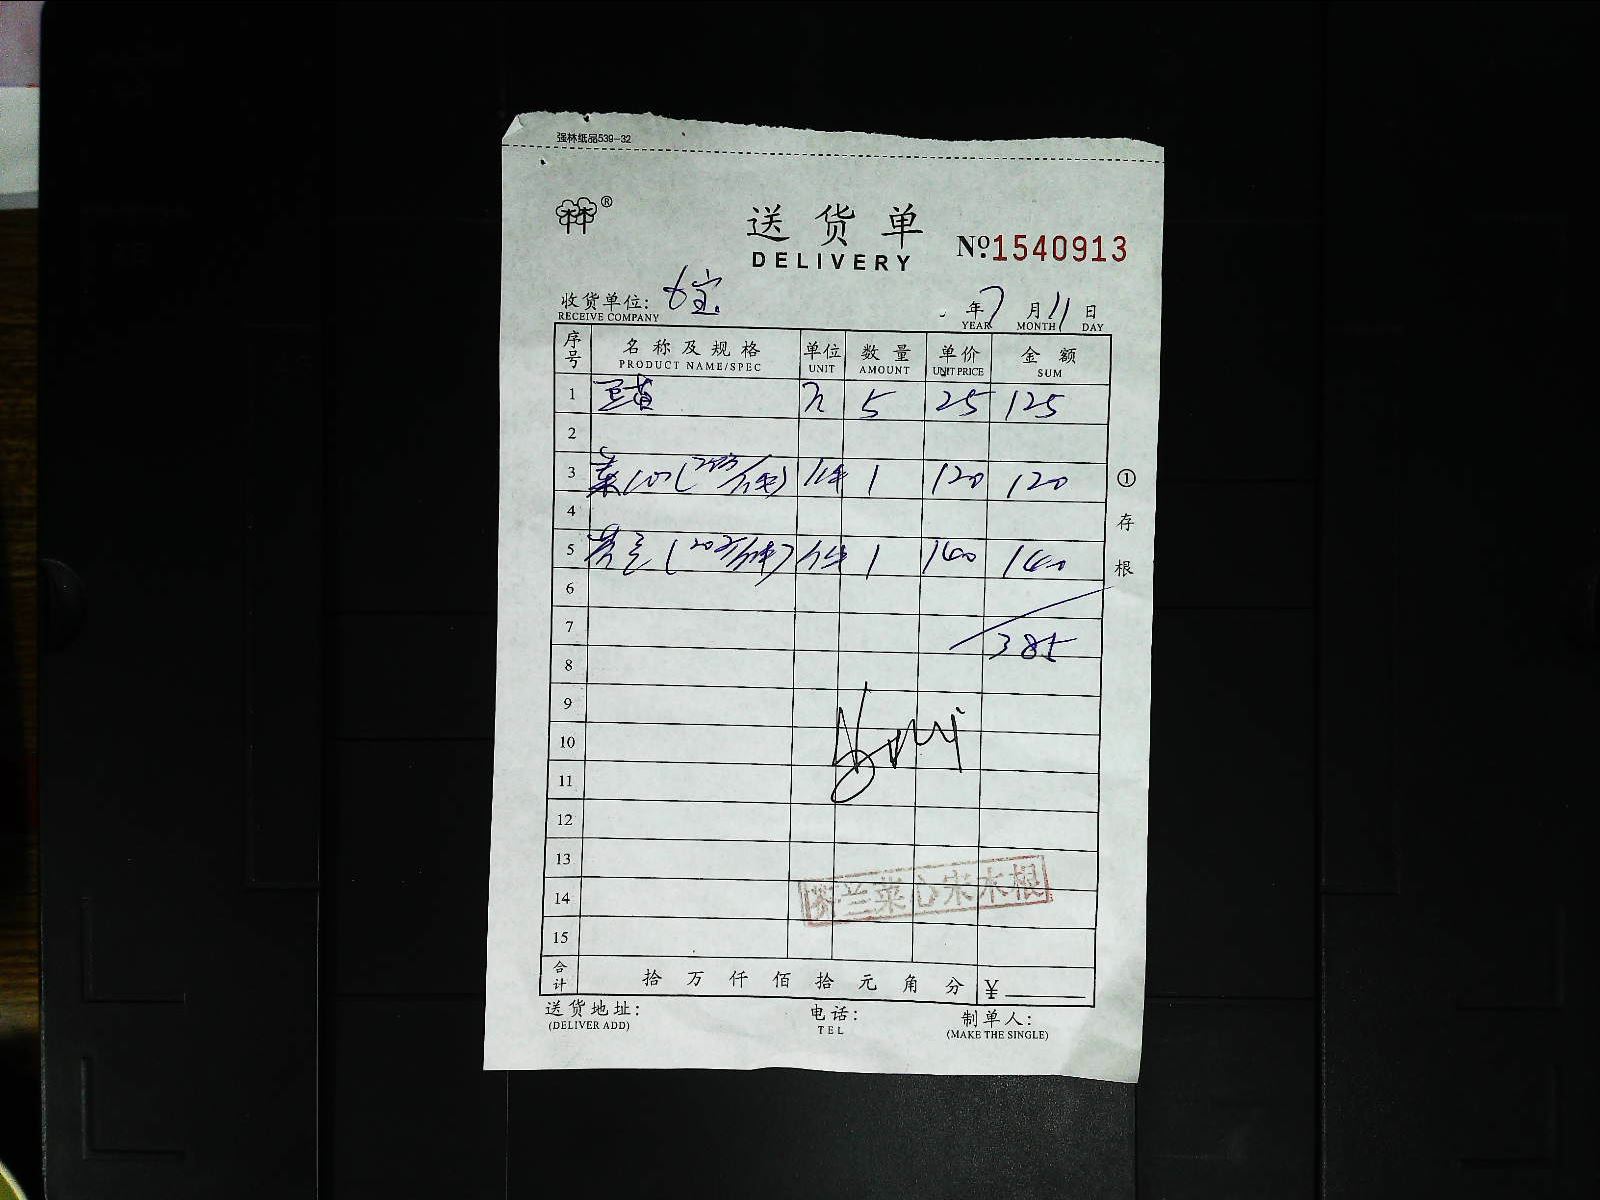 强林纸品539-32
林林®
送货单
DELIVERY
№:1540913
收货单位:
RECEIVE COMPANY
年7月11日
YEAR MONTH DAY
序号 名称及规格 单位 数量 单价 金额
PRODUCT NAME/SPEC UNIT AMOUNT UNIT PRICE SUM
1 豆苗 5 25 125
2
3 菜心( /件) 件 1 120 120
4
5 芥兰( /件) 件 1 140 140
6
7 385
8
9
10
11
12
13
芥兰菜心宋木根
14
15
合计 拾万仟佰拾元角分 ¥
送货地址: 电话: 制单人:
(DELIVER ADD) TEL (MAKE THE SINGLE)
①存根